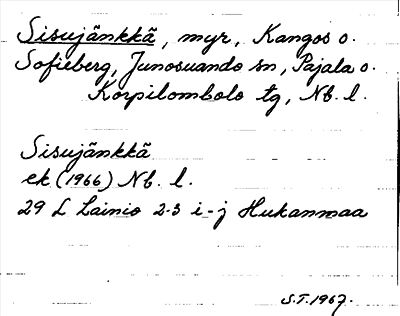 Sisujänkkä, myr, Kangos o.
Sofieberg, Junosuando sn, Pajala o.
Korpilombolo tg, Nb. l.
Sisujänkkä
ek (1966) Nb. l.
29 L Lainio 2-3 i-j Hukanmaa
S.T. 1967.